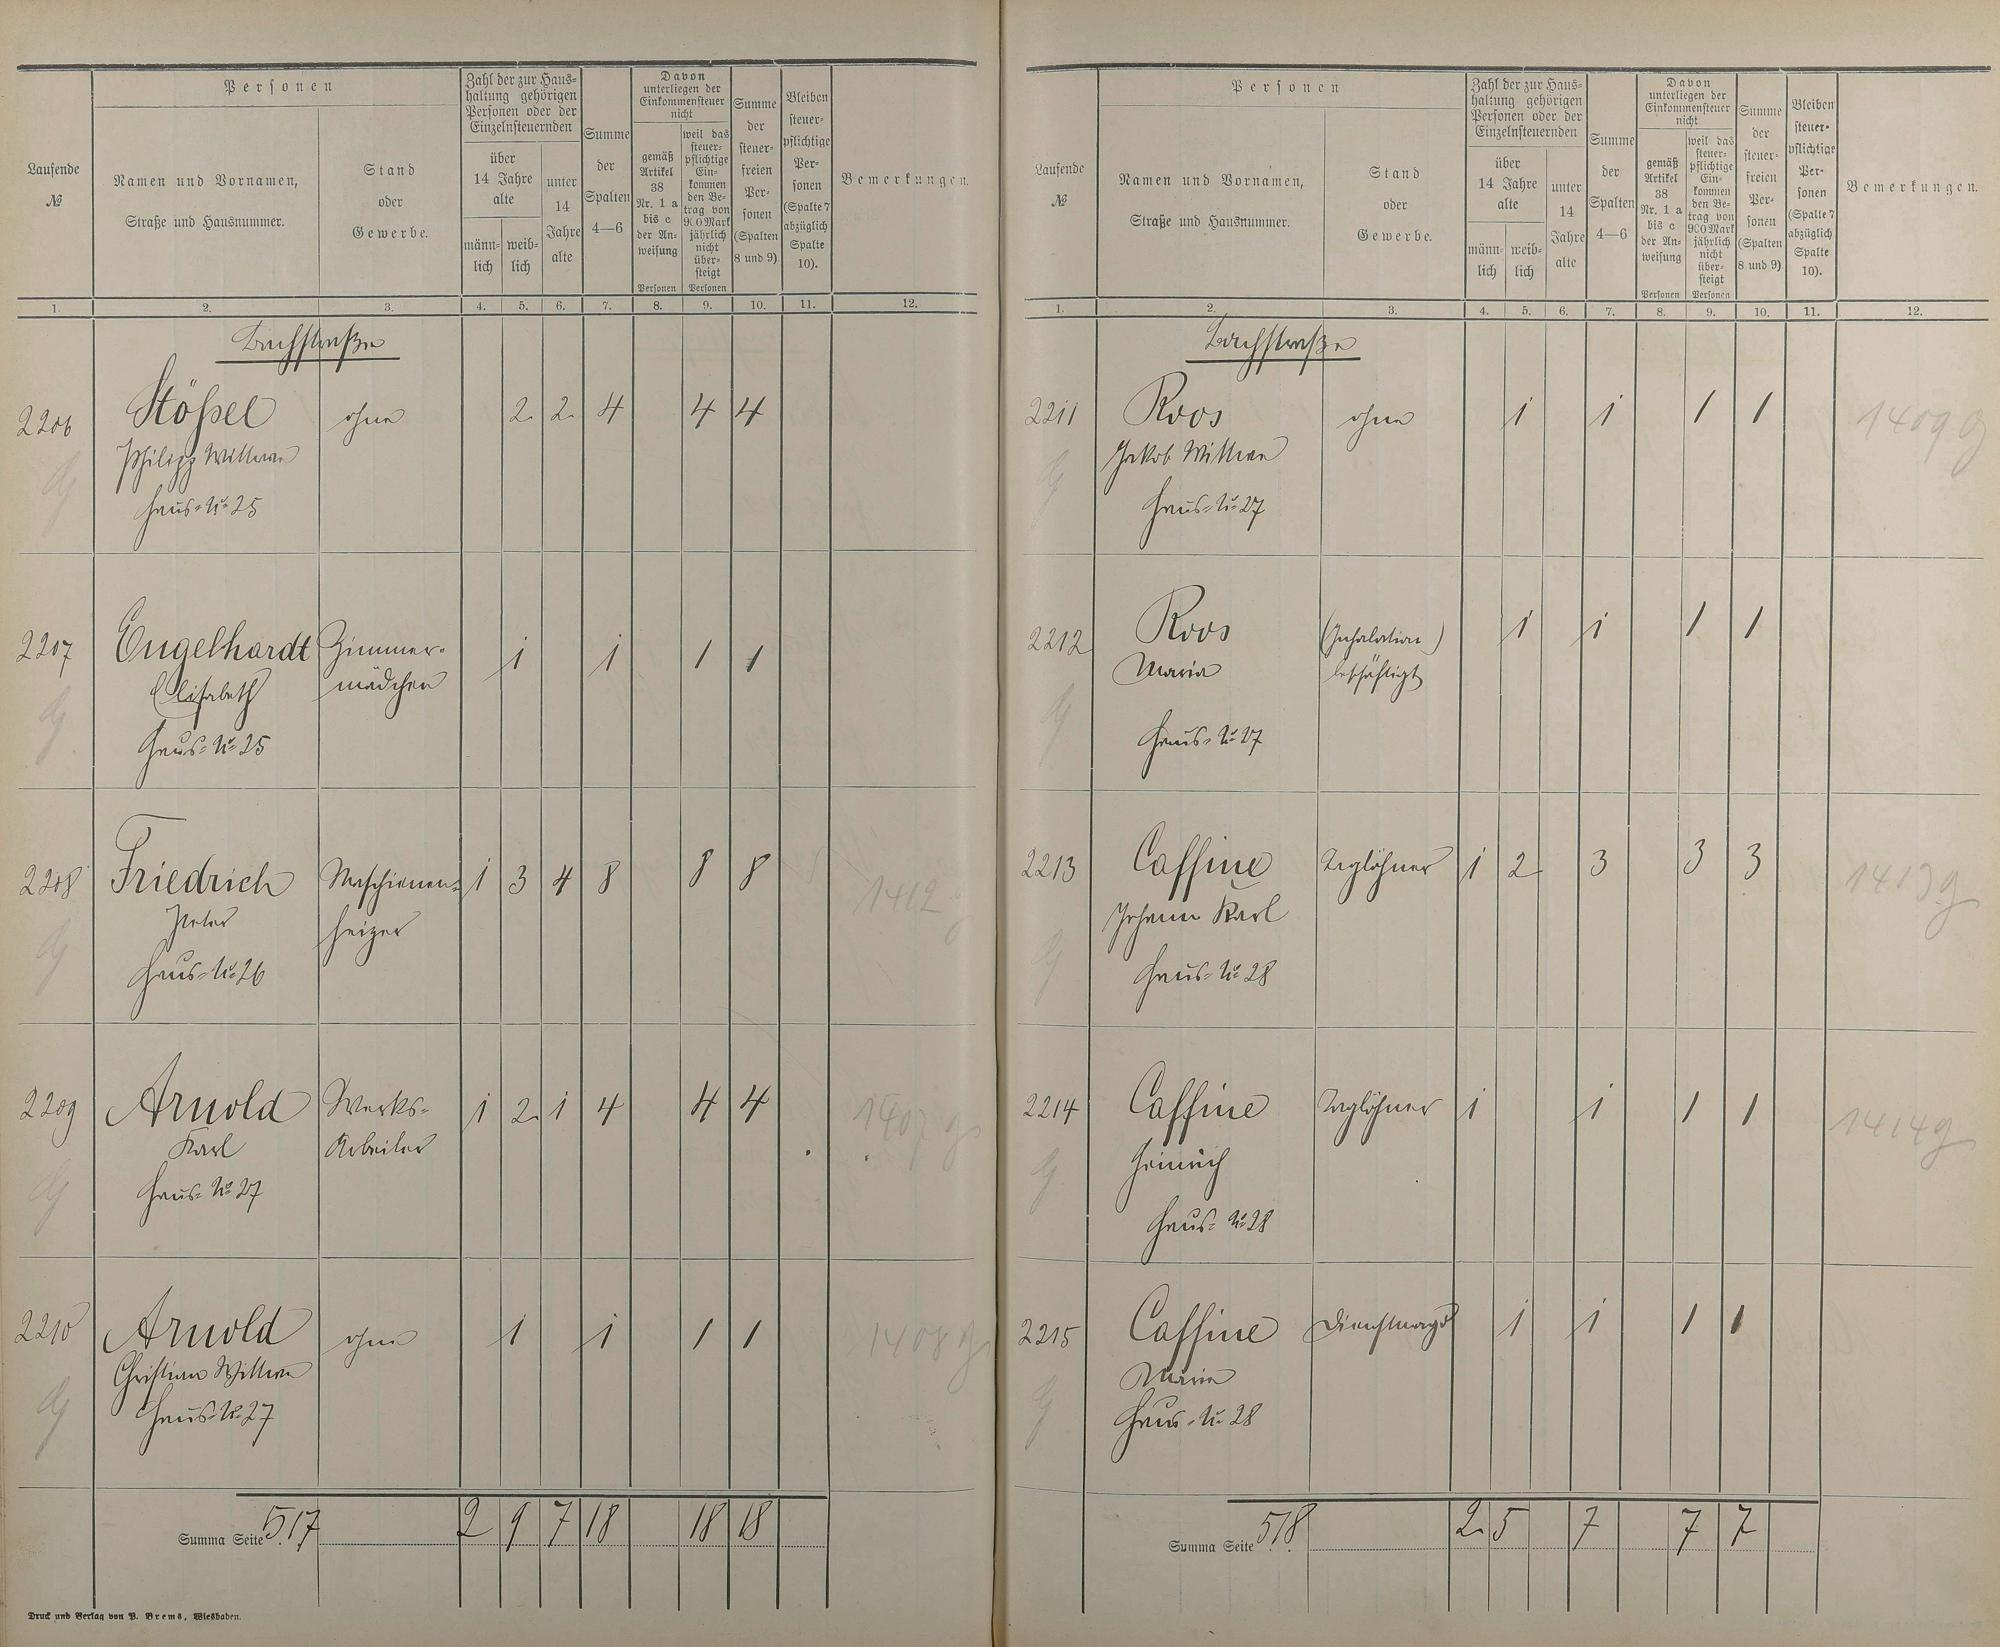 Laufende
№
Personen
Namen und Vornamen,
Straße und Hausnummer.
Stand
oder
Gewerbe.
Zahl der zur Haus-
haltung gehörigen
Personen oder der
Einzelnsteuernden
über
14 Jahre
alte
männ-
lich
weib-
lich
unter
14
Jahre
alte
Summe
der
Spalten
4—6
Davon
unterliegen der
Einkommensteuer
nicht
gemäß
Artikel
38
Nr. 1 a
bis c
der An-
weisung
Personen
weil das
steuer-
pflichtige
Ein-
kommen
den Be-
trag von
900 Mark
jährlich
nicht
über-
steigt
Personen
Summe
der
steuer-
freien
Per-
sonen
(Spalten
8 und 9)
Bleiben
steuer-
pflichtige
Per-
sonen
(Spalte 7
abzüglich
Spalte
10).
Bemerkungen.
1. 2. 3. 4. 5. 6. 7. 8. 9. 10. 11. 12.
Bachstraße
2206 Stößel ohne 2 2 4 4 4
Philipp Wittwe
Haus-№ 25
2207 Engelhardt Zimmer- 1 1 1 1
Elisabeth mädchen
Haus-№ 25
2208 Friedrich Maschienen- 1 3 4 8 8 8 1412
Peter heizer
Haus-№ 26
2209 Arnold Werks- 1 2 1 4 4 4 1407 g
Karl Arbeiter
Haus-№ 27
2210 Arnold ohne 1 1 1 1 1408 g
Christian Wittwe
Haus-№ 27
Summa Seite 517 2 9 7 18 18 18
Druck und Verlag von P. Brems, Wiesbaden.
Laufende
№
Personen
Namen und Vornamen,
Straße und Hausnummer.
Stand
oder
Gewerbe.
Zahl der zur Haus-
haltung gehörigen
Personen oder der
Einzelnsteuernden
über
14 Jahre
alte
männ-
lich
weib-
lich
unter
14
Jahre
alte
Summe
der
Spalten
4—6
Davon
unterliegen der
Einkommensteuer
nicht
gemäß
Artikel
38
Nr. 1 a
bis c
der An-
weisung
Personen
weil das
steuer-
pflichtige
Ein-
kommen
den Be-
trag von
900 Mark
jährlich
nicht
über-
steigt
Personen
Summe
der
steuer-
freien
Per-
sonen
(Spalten
8 und 9)
Bleiben
steuer-
pflichtige
Per-
sonen
(Spalte 7
abzüglich
Spalte
10).
Bemerkungen.
1. 2. 3. 4. 5. 6. 7. 8. 9. 10. 11. 12.
Bachstraße
2211 Roos ohne 1 1 1 1 1409 g
Jakob Wittwe
Haus-№ 27
2212 Roos (Inhalation) 1 1 1 1
Maria beschäftigt
Haus-№ 27
2213 Caffine Taglöhner 1 2 3 3 3 1413 g
Johann Karl
Haus-№ 28
2214 Caffine Taglöhner 1 1 1 1 1414 g
Heinrich
Haus-№ 28
2215 Caffine Dienstmagd 1 1 1 1
Marie
Haus-№ 28
Summa Seite 518 2 5 7 7 7